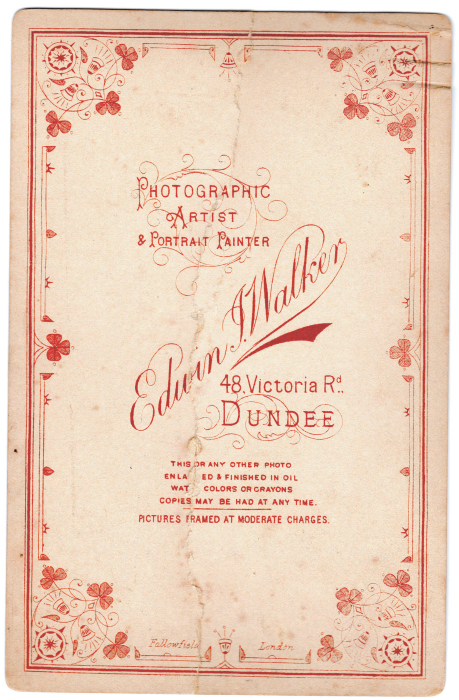 PHOTOGRAPHIC
ARTIST
& PORTRAIT PAINTER
Edwin J. Walker
48, Victoria Rd.
DUNDEE
THIS OR ANY OTHER PHOTO
ENLA ED & FINISHED IN OIL
WAT COLORS OR CRAYONS
COPIES MAY BE HAD AT ANY TIME.
PICTURES FRAMED AT MODERATE CHARGES.
Fallowfield London